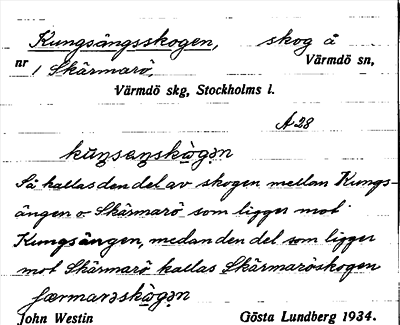 Kungsängsskogen, skog å
nr 1 Skärmarö, Värmdö sn,
Värmdö skg, Stockholms l.
A 28
kuŋsaŋskògən
Så kallas den del av skogen mellan Kungs-
ängen o Skärmarö som ligger mot
Kungsängen, medan den del som ligger
mot Skärmarö kallas Skärmaröskogen
ʃærmarəskògən
John Westin Gösta Lundberg 1934.